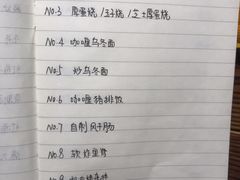 No.3 厚蛋烧/玉子烧/芝士厚蛋烧
No.4 咖喱乌冬面
No.5 炒乌冬面
No.6 咖喱猪排饭
No.7 自制风干肠
No.8 软炸里脊